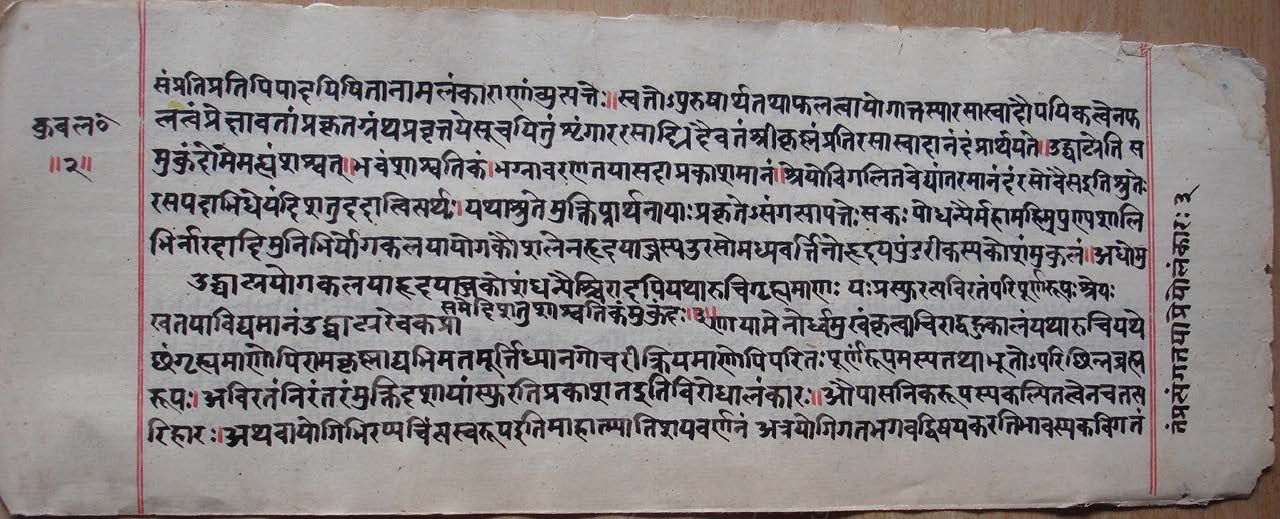 संप्रतिप्रतिपिपादयिषितानामलंकाराणां सत्तेः॥स्वतोऽपुरुषार्थतयाफलत्वायोगात्तस्यारसास्वादौपयिकत्वेनफ
कुवल०
॥२॥
लत्वंप्रेक्षावतांप्रकृतग्रंथप्रवृत्तयेसूचयितुंशृंगाररसाधिदैवतंश्रीकृष्णंप्रतिरसास्वादानंदंप्रार्थयते॥उद्घाट्येति स
मुकुंदोमेमह्यंशाश्वत्॥भवंशाश्वतिकं॥भग्नावरणतयासदाप्रकाशमानं॥श्रेयोविगलितवेद्यांतरमानंदंरसोवैसइतिश्रुतेः
रसपदाभिधेयंदिशतुददात्वित्यर्थः॥यथाश्रुतेमुक्तिप्रार्थनायाःप्रकृतेऽसंगत्यापत्तेःसकः योधन्यैर्महामहिमपुण्यशालि
भिर्नारदादिमुनिभिर्योगकलयायोगकौशलेनहृदयाब्जस्यउरसोमध्यवर्त्तिनोहृदयपुंडरीकस्यकोशंमुकुलं॥अधोमु
उद्घाट्ययोगकलयाहृदयाब्जकोशंधन्यैश्चिरादपियथारुचिगृह्यमाणः यःप्रस्फुरत्यविरतंपरिपूर्णरूपःश्रेयः
समेदिशतुशाश्वतिकंमुकुंदः॥३॥
खतयाविद्यमानंउद्घाट्यरेचकप्राणायामेनोर्ध्वमुखंकृत्वाचिराद्बहुकालंयथारुचियथे
छंगृह्यमाणोपिरामकृष्णाद्यभिमतमूर्त्तिध्यानगोचरीक्रियमाणोपिपरितःपूर्णरूपमस्यतथाभूतोऽपरिछिन्नब्रह्म
रूपः॥अविरतंनिरंतरंमुक्तिदशायांस्फुरतिप्रकाशतइतिविरोधालंकारः॥औपासनिकरूपस्यकल्पितत्वेनचतत्प
रिहारः॥अथवायोगिभिरप्यचिंत्यस्वरूपइतिमाहात्म्यातिशयवर्णनं अत्रयोगिगतभगवद्विषयकरतिभावस्यकविगतं
तंप्रत्यंगतयाप्रेयोलंकारः३